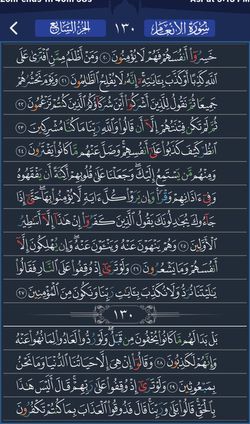 سُورَةُ الأنعَام
١٣٠
الجُزْءُ السَّابِعُ
خَسِرُوٓا۟ أَنفُسَهُمْ فَهُمْ لَا يُؤْمِنُونَ ٢٠ وَمَنْ أَظْلَمُ مِمَّنِ ٱفْتَرَىٰ عَلَى
ٱللَّهِ كَذِبًا أَوْ كَذَّبَ بِـَٔايَـٰتِهِۦٓ إِنَّهُۥ لَا يُفْلِحُ ٱلظَّـٰلِمُونَ ٢١ وَيَوْمَ نَحْشُرُهُمْ
جَمِيعًا ثُمَّ نَقُولُ لِلَّذِينَ أَشْرَكُوٓا۟ أَيْنَ شُرَكَآؤُكُمُ ٱلَّذِينَ كُنتُمْ تَزْعُمُونَ ٢٢
ثُمَّ لَمْ تَكُن فِتْنَتُهُمْ إِلَّآ أَن قَالُوا۟ وَٱللَّهِ رَبِّنَا مَا كُنَّا مُشْرِكِينَ ٢٣
ٱنظُرْ كَيْفَ كَذَبُوا۟ عَلَىٰٓ أَنفُسِهِمْ وَضَلَّ عَنْهُم مَّا كَانُوا۟ يَفْتَرُونَ ٢٤
وَمِنْهُم مَّن يَسْتَمِعُ إِلَيْكَ وَجَعَلْنَا عَلَىٰ قُلُوبِهِمْ أَكِنَّةً أَن يَفْقَهُوهُ
وَفِىٓ ءَاذَانِهِمْ وَقْرًا وَإِن يَرَوْا۟ كُلَّ ءَايَةٍ لَّا يُؤْمِنُوا۟ بِهَا حَتَّىٰٓ إِذَا
جَآءُوكَ يُجَـٰدِلُونَكَ يَقُولُ ٱلَّذِينَ كَفَرُوٓا۟ إِنْ هَـٰذَآ إِلَّآ أَسَـٰطِيرُ
ٱلْأَوَّلِينَ ٢٥ وَهُمْ يَنْهَوْنَ عَنْهُ وَيَنْـَٔوْنَ عَنْهُ وَإِن يُهْلِكُونَ إِلَّآ
أَنفُسَهُمْ وَمَا يَشْعُرُونَ ٢٦ وَلَوْ تَرَىٰٓ إِذْ وُقِفُوا۟ عَلَى ٱلنَّارِ فَقَالُوا۟
يَـٰلَيْتَنَا نُرَدُّ وَلَا نُكَذِّبَ بِـَٔايَـٰتِ رَبِّنَا وَنَكُونَ مِنَ ٱلْمُؤْمِنِينَ ٢٧
١٣٠
بَلْ بَدَا لَهُم مَّا كَانُوا۟ يُخْفُونَ مِن قَبْلُ وَلَوْ رُدُّوا۟ لَعَادُوا۟ لِمَا نُهُوا۟ عَنْهُ
وَإِنَّهُمْ لَكَـٰذِبُونَ ٢٨ وَقَالُوٓا۟ إِنْ هِىَ إِلَّا حَيَاتُنَا ٱلدُّنْيَا وَمَا نَحْنُ
بِمَبْعُوثِينَ ٢٩ وَلَوْ تَرَىٰٓ إِذْ وُقِفُوا۟ عَلَىٰ رَبِّهِمْ قَالَ أَلَيْسَ هَـٰذَا
بِٱلْحَقِّ قَالُوا۟ بَلَىٰ وَرَبِّنَا قَالَ فَذُوقُوا۟ ٱلْعَذَابَ بِمَا كُنتُمْ تَكْفُرُونَ